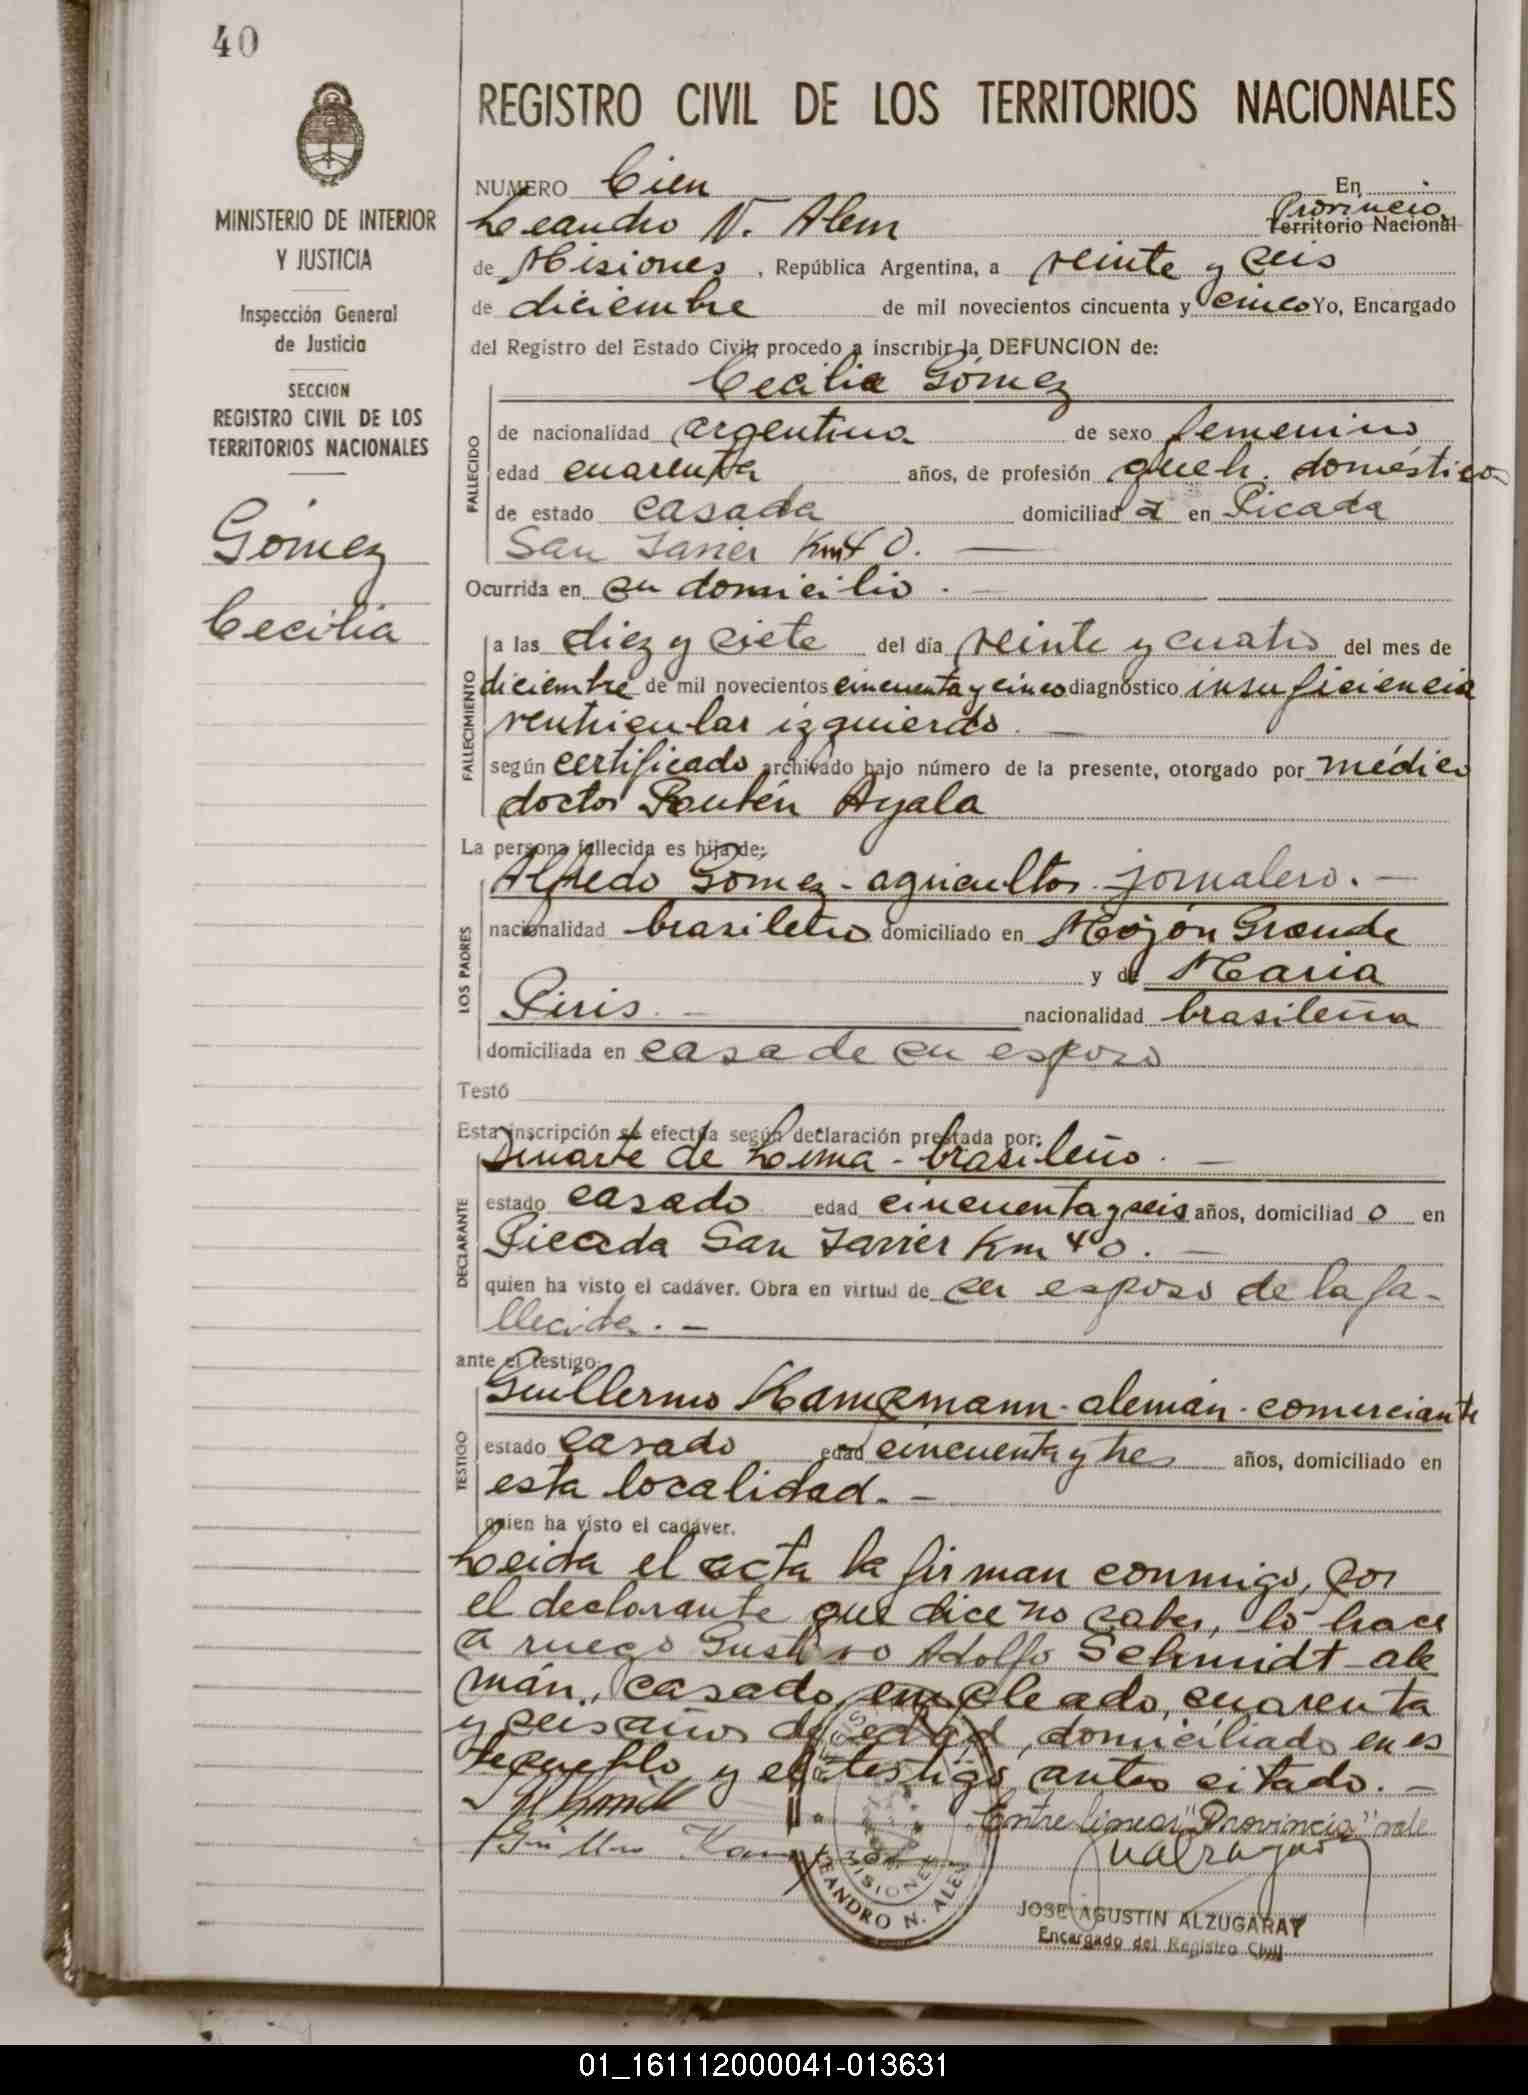 40
REGISTRO CIVIL DE LOS TERRITORIOS NACIONALES
MINISTERIO DE INTERIOR
Y JUSTICIA
Inspección General
de Justicia
SECCION
REGISTRO CIVIL DE LOS
TERRITORIOS NACIONALES
Gómez
Cecilia
NUMERO Cien En
Leandro N. Alem Provincia Territorio Nacional
de Misiones, República Argentina, a veinte y seis
de diciembre de mil novecientos cincuenta y cinco Yo, Encargado
del Registro del Estado Civil, procedo a inscribir la DEFUNCION de:
Cecilia Gómez
FALLECIDO
de nacionalidad argentina de sexo femenino
edad cuarenta años, de profesión queh. domésticos
de estado casada domiciliad a en Picada
San Javier Km 40. —
Ocurrida en su domicilio. —
FALLECIMIENTO
a las diez y siete del día veinte y cuatro del mes de
diciembre de mil novecientos cincuenta y cinco diagnóstico insuficiencia
ventricular izquierdo. —
según certificado archivado bajo número de la presente, otorgado por médico
doctor Rubén Ayala
La persona fallecida es hija de:
LOS PADRES
Alfredo Gómez - agricultor jornalero. —
nacionalidad brasileño domiciliado en Mojón Grande
y de Maria
Piris. — nacionalidad brasileña
domiciliada en casa de su esposo
Testó
Esta inscripción se efectúa según declaración prestada por:
DECLARANTE
Duarte de Lima - brasileño. —
estado casado edad cincuenta y seis años, domiciliad o en
Picada San Javier Km 40. —
quien ha visto el cadáver. Obra en virtud de ser esposo de la fa-
llecida. —
ante el testigo:
TESTIGO
Guillermo Kampmann - alemán - comerciante
estado casado edad cincuenta y tres años, domiciliado en
esta localidad. —
quien ha visto el cadáver.
Leida el acta la firman conmigo, por
el declarante que dice no saber, lo hace
a ruego Gustavo Adolfo Schmidt - ale
mán, casado, empleado, cuarenta
y seis años de edad, domiciliado en es
te pueblo y el testigo antes citado. —
Entre lineas "Provincia" vale
LEANDRO N. ALEM
MISIONES
JOSE AGUSTIN ALZUGARAY
Encargado del Registro Civil
01_161112000041-013631